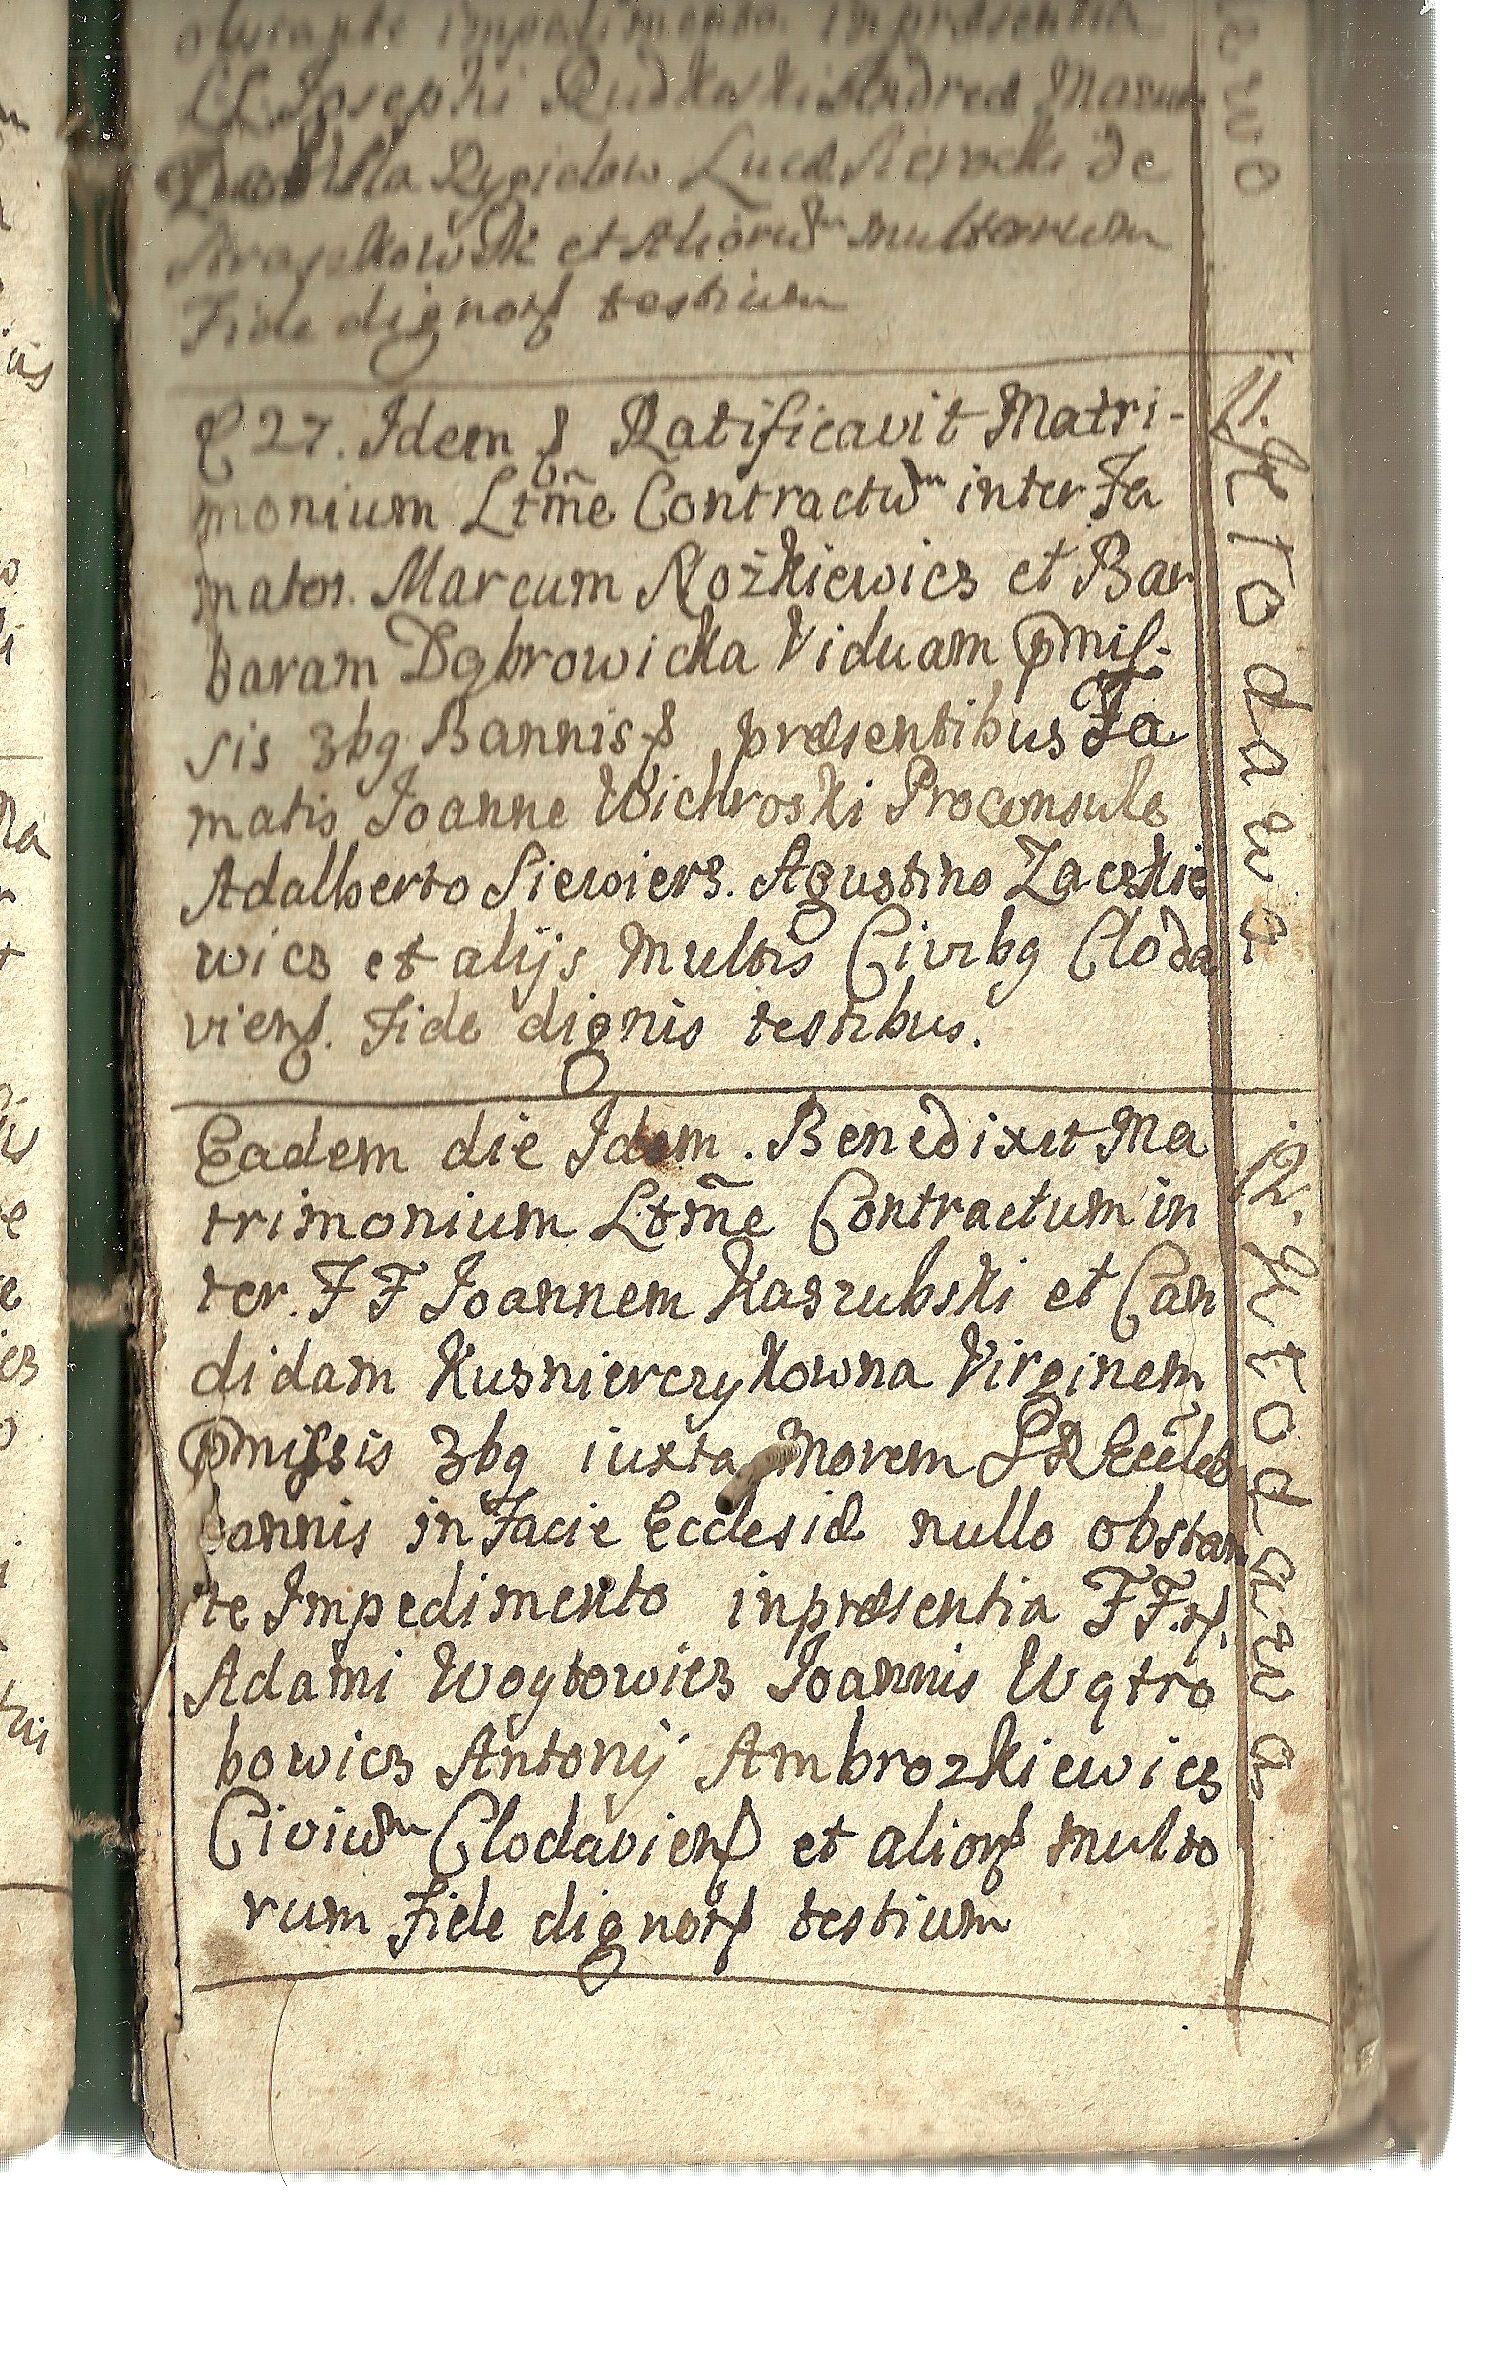 obstante impedimento in præsentia
LL Josephi Rudkoski Andreæ
Lucæ de
et Aliorum multorum
Fide dignorꝝ testium
27. Idem Ratificavit Matri-
monium Ltm̃e Contractum inter Fa
matos. Marcum Rożkiewicz et Bar
baram Dąbrowicka Viduam p̃mis-
sis 3bꝯ Bannis præsentibus Fa
matis Joanne Wichroski Proconsule
Adalberto Siewierz. Agustino Zaczkie
wicz et alijs Multis Civibꝯ Cloda
viens. Fide dignis testibus.
11. Kłodawa
Eadem die Idem. Benedixit Ma
trimonium Ltm̃e Contractum in
ter. FF Joannem Kaszubski et Can
didam Kusnierczykowna Virginem
p̃missis 3bꝯ iuxta Morem SR Eccles
bannis in Facie Ecclesiæ nullo obstan
te Impedimento in præsentia FF.
Adami Woytowicz Joannis Wątro
bowicz Antonij Ambrozkiewicz
Civium Clodaviens et aliorꝝ multo
rum Fide dignorꝝ testium
12. Kłodawa